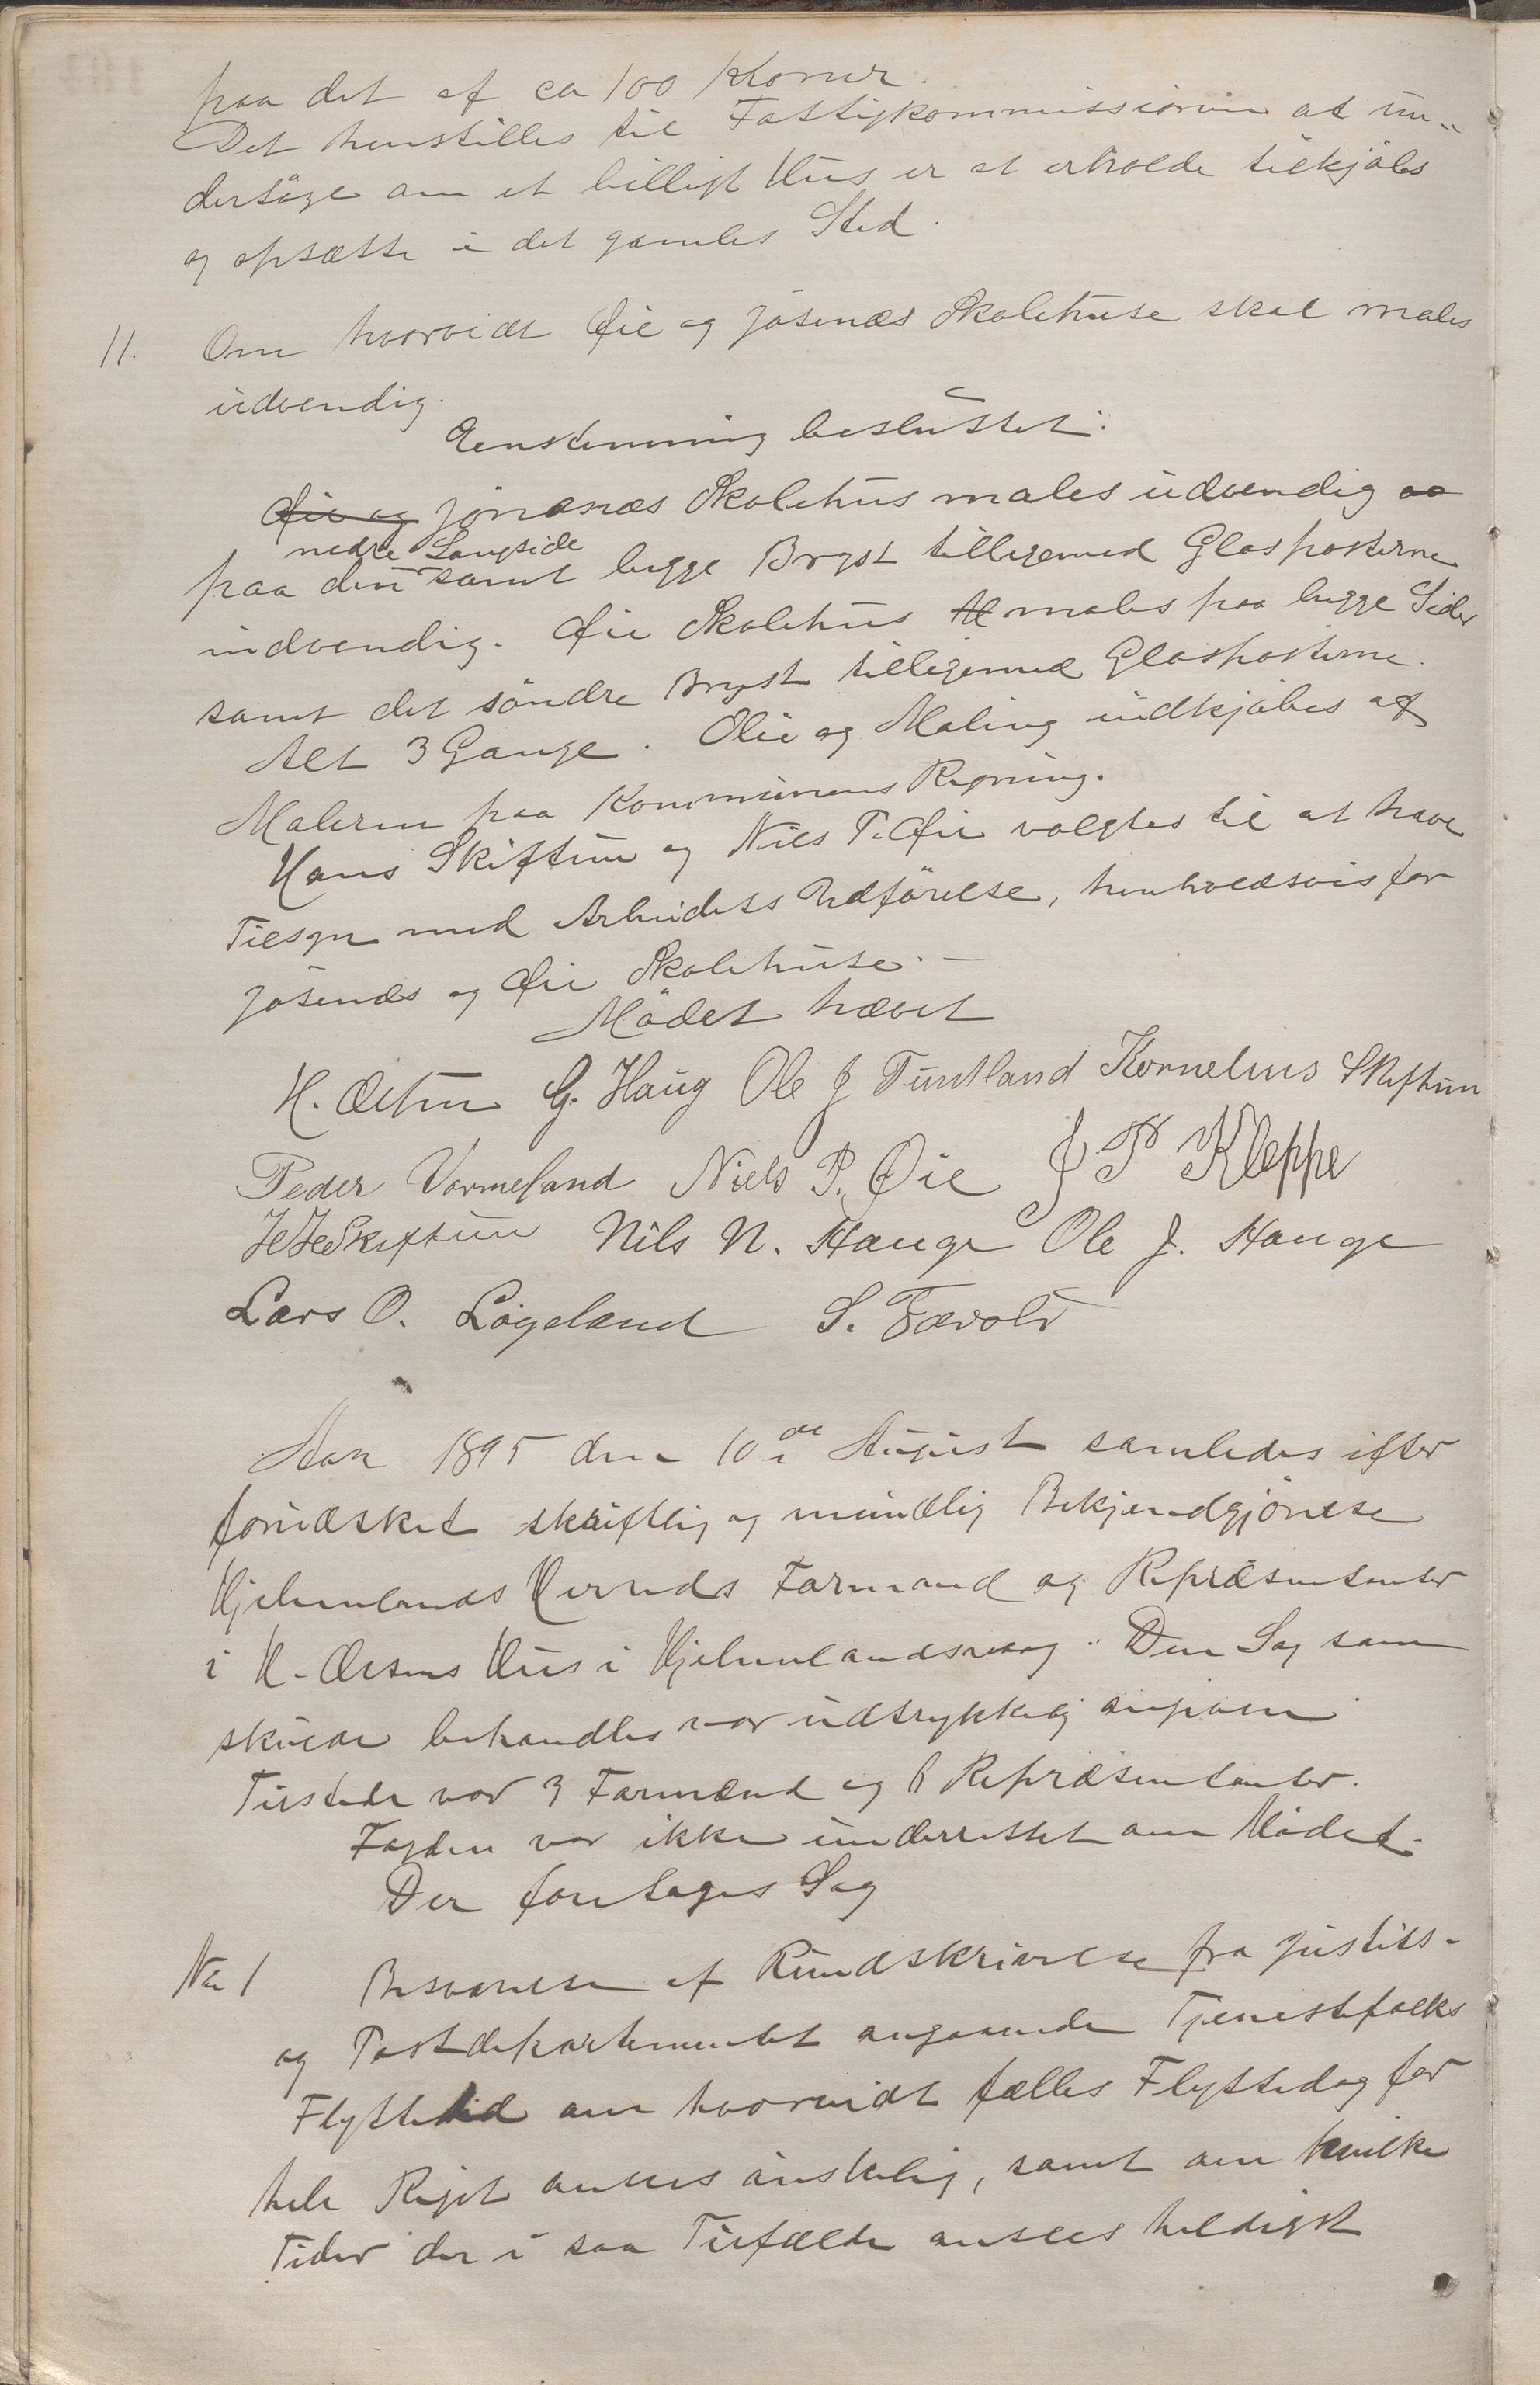 paa det af ca 100 Kroner.
Det henstilles til Fattigkommissionen at un„
dersøge om et billigt Hus er at erholde tilkjøbs
og opsætte i det gamles Sted.
11. Om hvorvidt Øie og Jøsenæs Skolehuse skal males
udvendig.
Eenstemmig besluttet:
Øie og Jøsenæs Skolehus males udvendig
nedre Langside
paa den samt begge Bryst tilligemed Glasposterne
indvendig. Øie Skolehus males paa begge Sider
samt det søndre Bryst tilligemed Glasposterne.
Alt 3 Gange. Olie og Maling indkjøbes af
Maleren paa Kommunens Regning.
Hans Skiftun og Niels P. Øie valgtes til at have
Tilsyn med Arbeidets Udførelse, henholdsvis for
Jøsenæs og Øie Skolehuse. —
Mødet hævet
H. Østun G. Haug Ole J Tuntland Kornelius Skiftun
Peder Vormeland Niels P. Øie J P Kleppe
H H Skiftun Nils N. Hauge Ole J. Hauge
Lars O. Løgeland S. Fævold
Aar 1895 den 10de August samledes efter
foriædsket skriftlig og mundlig Bekjendgjørelse
Hjelmelands Herreds Formænd og Repræsentanter
i H. Østuns Hus i Hjelmelandsvaag. Den Sag som
skulde behandles var udtrykkelig angiven
Tilstede var 3 Formænd og 6 Repræsentanter.
Fogden var ikke underrettet om Mødet.
Der foretages Sag
No 1 Besvarelse af Rundskrivelse fra Justits-
og Postdepartementet angaaende Tjenestefolks
Flyttetid om hvorvidt fælles Flyttedag for
hele Riget ansees ønskelig, samt om hvilke
Tider der i saa Tilfælde ansees heldigst